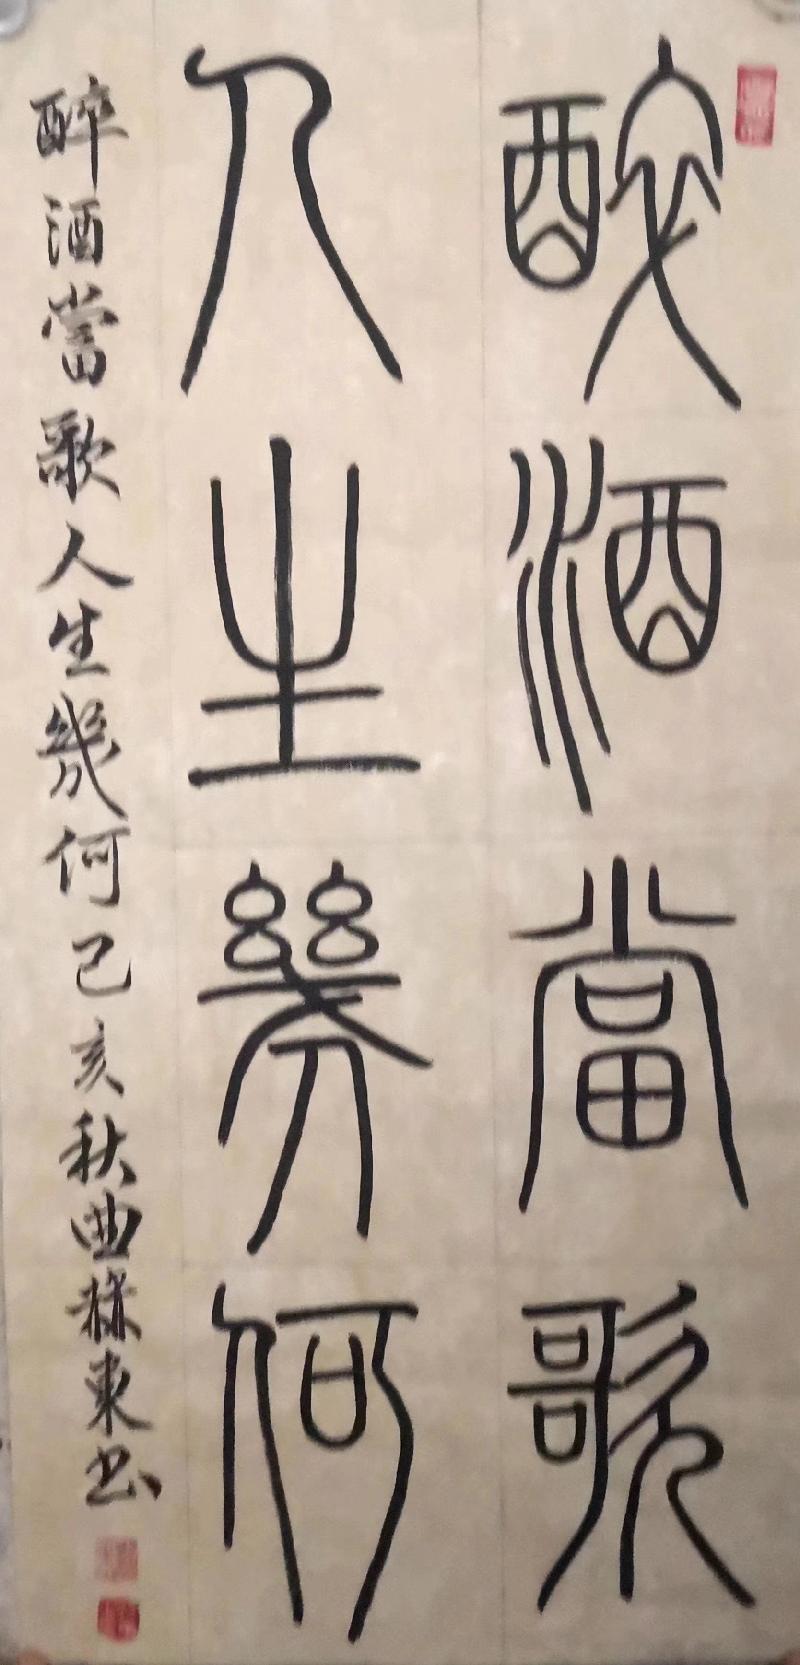 醉酒當歌
人生幾何
醉酒當歌人生幾何己亥秋曲
東书